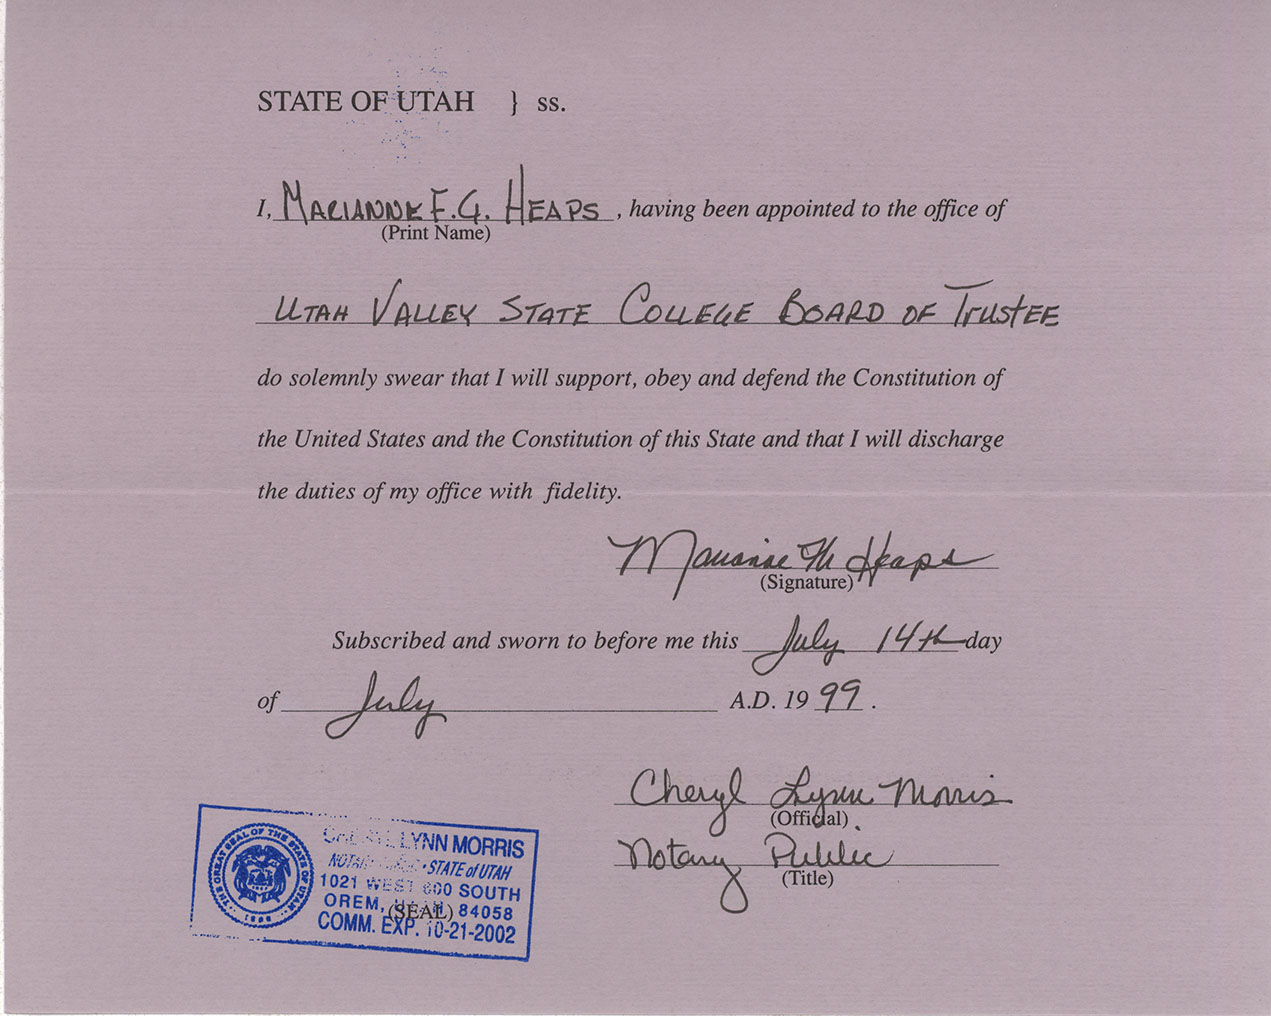 STATE OF UTAH } ss.
I, MARIANNE F.G. HEAPS, having been appointed to the office of
(Print Name)
UTAH VALLEY STATE COLLEGE BOARD OF TRUSTEE
do solemnly swear that I will support, obey and defend the Constitution of
the United States and the Constitution of this State and that I will discharge
the duties of my office with fidelity.
Marianne Heaps
(Signature)
Subscribed and sworn to before me this July 14th day
of July A.D. 1999.
Cheryl Lynn Morris
(Official)
Notary Public
(Title)
THE GREAT SEAL OF THE STATE OF UTAH
1896
LYNN MORRIS
STATE of UTAH
1021 WEST 800 SOUTH
OREM, UTAH 84058
(SEAL)
COMM. EXP. 10-21-2002